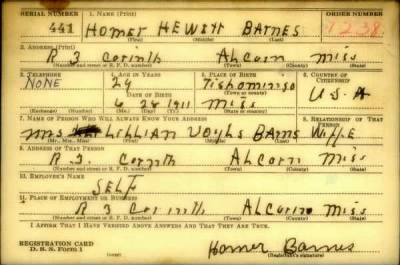 SERIAL NUMBER 1. NAME (Print) ORDER NUMBER
441 HOMER HEWITT BARNES 1238
(First) (Middle) (Last)
2. ADDRESS (Print)
R 3 Corinth Alcorn Miss
(Number and street or R. F. D. number) (Town) (County) (State)
3. TELEPHONE 4. AGE IN YEARS 5. PLACE OF BIRTH 6. COUNTRY OF CITIZENSHIP
NONE 29 Tishomingo U.S.A
(Town or county)
DATE OF BIRTH
6 28 1911 Miss
(Exchange) (Number) (Mo.) (Day) (Yr.) (State or country)
7. NAME OF PERSON WHO WILL ALWAYS KNOW YOUR ADDRESS 8. RELATIONSHIP OF THAT PERSON
Mrs LILLIAN VOYLS BARNS Wiffe
(Mr., Mrs., Miss) (First) (Middle) (Last)
9. ADDRESS OF THAT PERSON
R 3. Corinth Alcorn Miss
(Number and street or R. F. D. number) (Town) (County) (State)
10. EMPLOYER'S NAME
SELF
11. PLACE OF EMPLOYMENT OR BUSINESS
R 3 Corinth ALCORN Miss
(Number and street or R. F. D. number) (Town) (County) (State)
I AFFIRM THAT I HAVE VERIFIED ABOVE ANSWERS AND THAT THEY ARE TRUE.
REGISTRATION CARD
D. S. S. Form 1 Homer Barnes
(Registrant's signature)